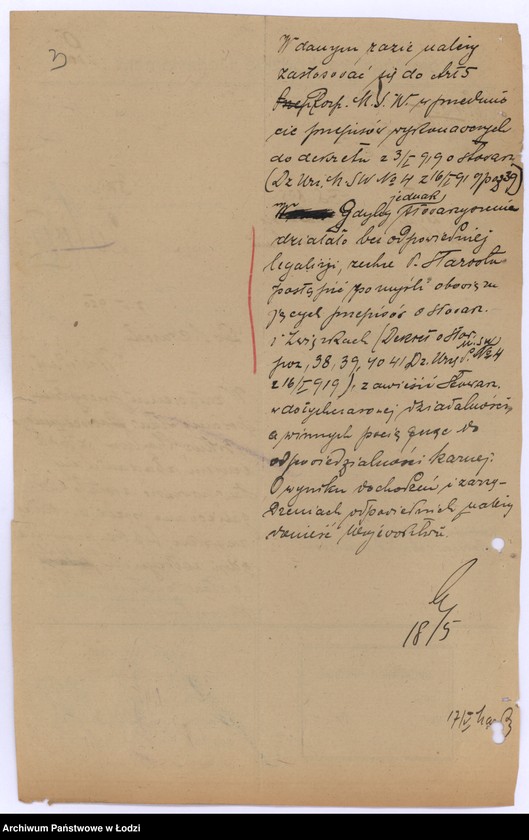 W danym razie należy
zastosować się do Art 5
Rozp. M. S. W. w przedmio
cie przepisów wykonawczych
do dekretu z 3/I 919 o stowarz.
(Dz Urz. M SW № 4 z 16/I 919 poz 39)
jednak
Gdyby Stowarzyszenie
działało bez odpowiedniej
legalizji, zechce P. Starosta
postąpić po myśli obowiązu
jących przepisów o stowarz.
i związkach (Dekret o Stow.
M. S. W
poz, 38, 39, 40 41 Dz. Urzęd. № 4
z 16/I 919), zawiesić Stowarz.
w dotychczasowej działalności,
a winnych pociągnąc do
odpowiedzialności karnej.
O wyniku dochodzeń i zarzą-
dzeniach odpowiednich należy
donieść Województwu.
18/5
17/V
Archiwum Państwowe w Łodzi